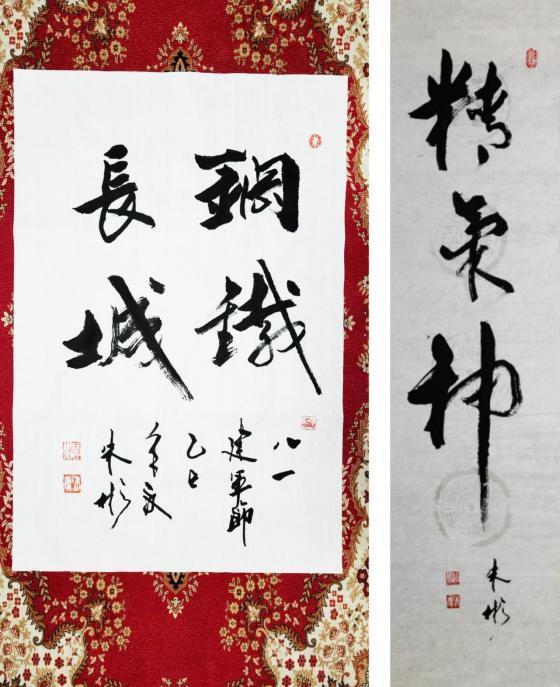 鋼鐵
長城
八一
建軍節
乙巳
年夏
朱彬
精氣神
朱彬